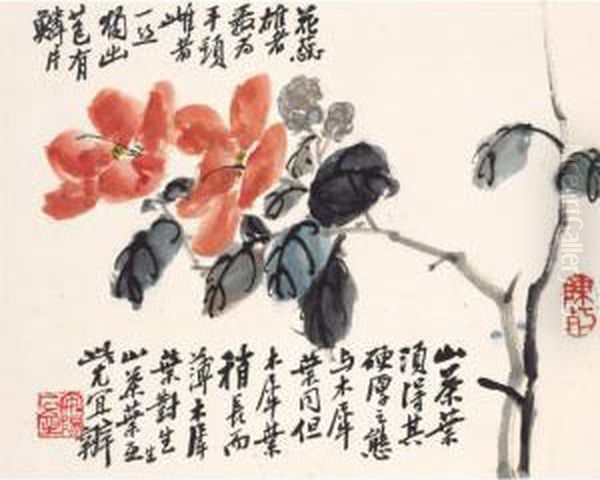 花蕊
雄者
最为
平頭
雌者
一丝
獨出
苞有
鱗片
山茶葉
須得其
硬厚之態
与木犀
葉同但
木犀葉
稍長而
薄木犀
葉對生
山茶葉互生
此尤宜辨